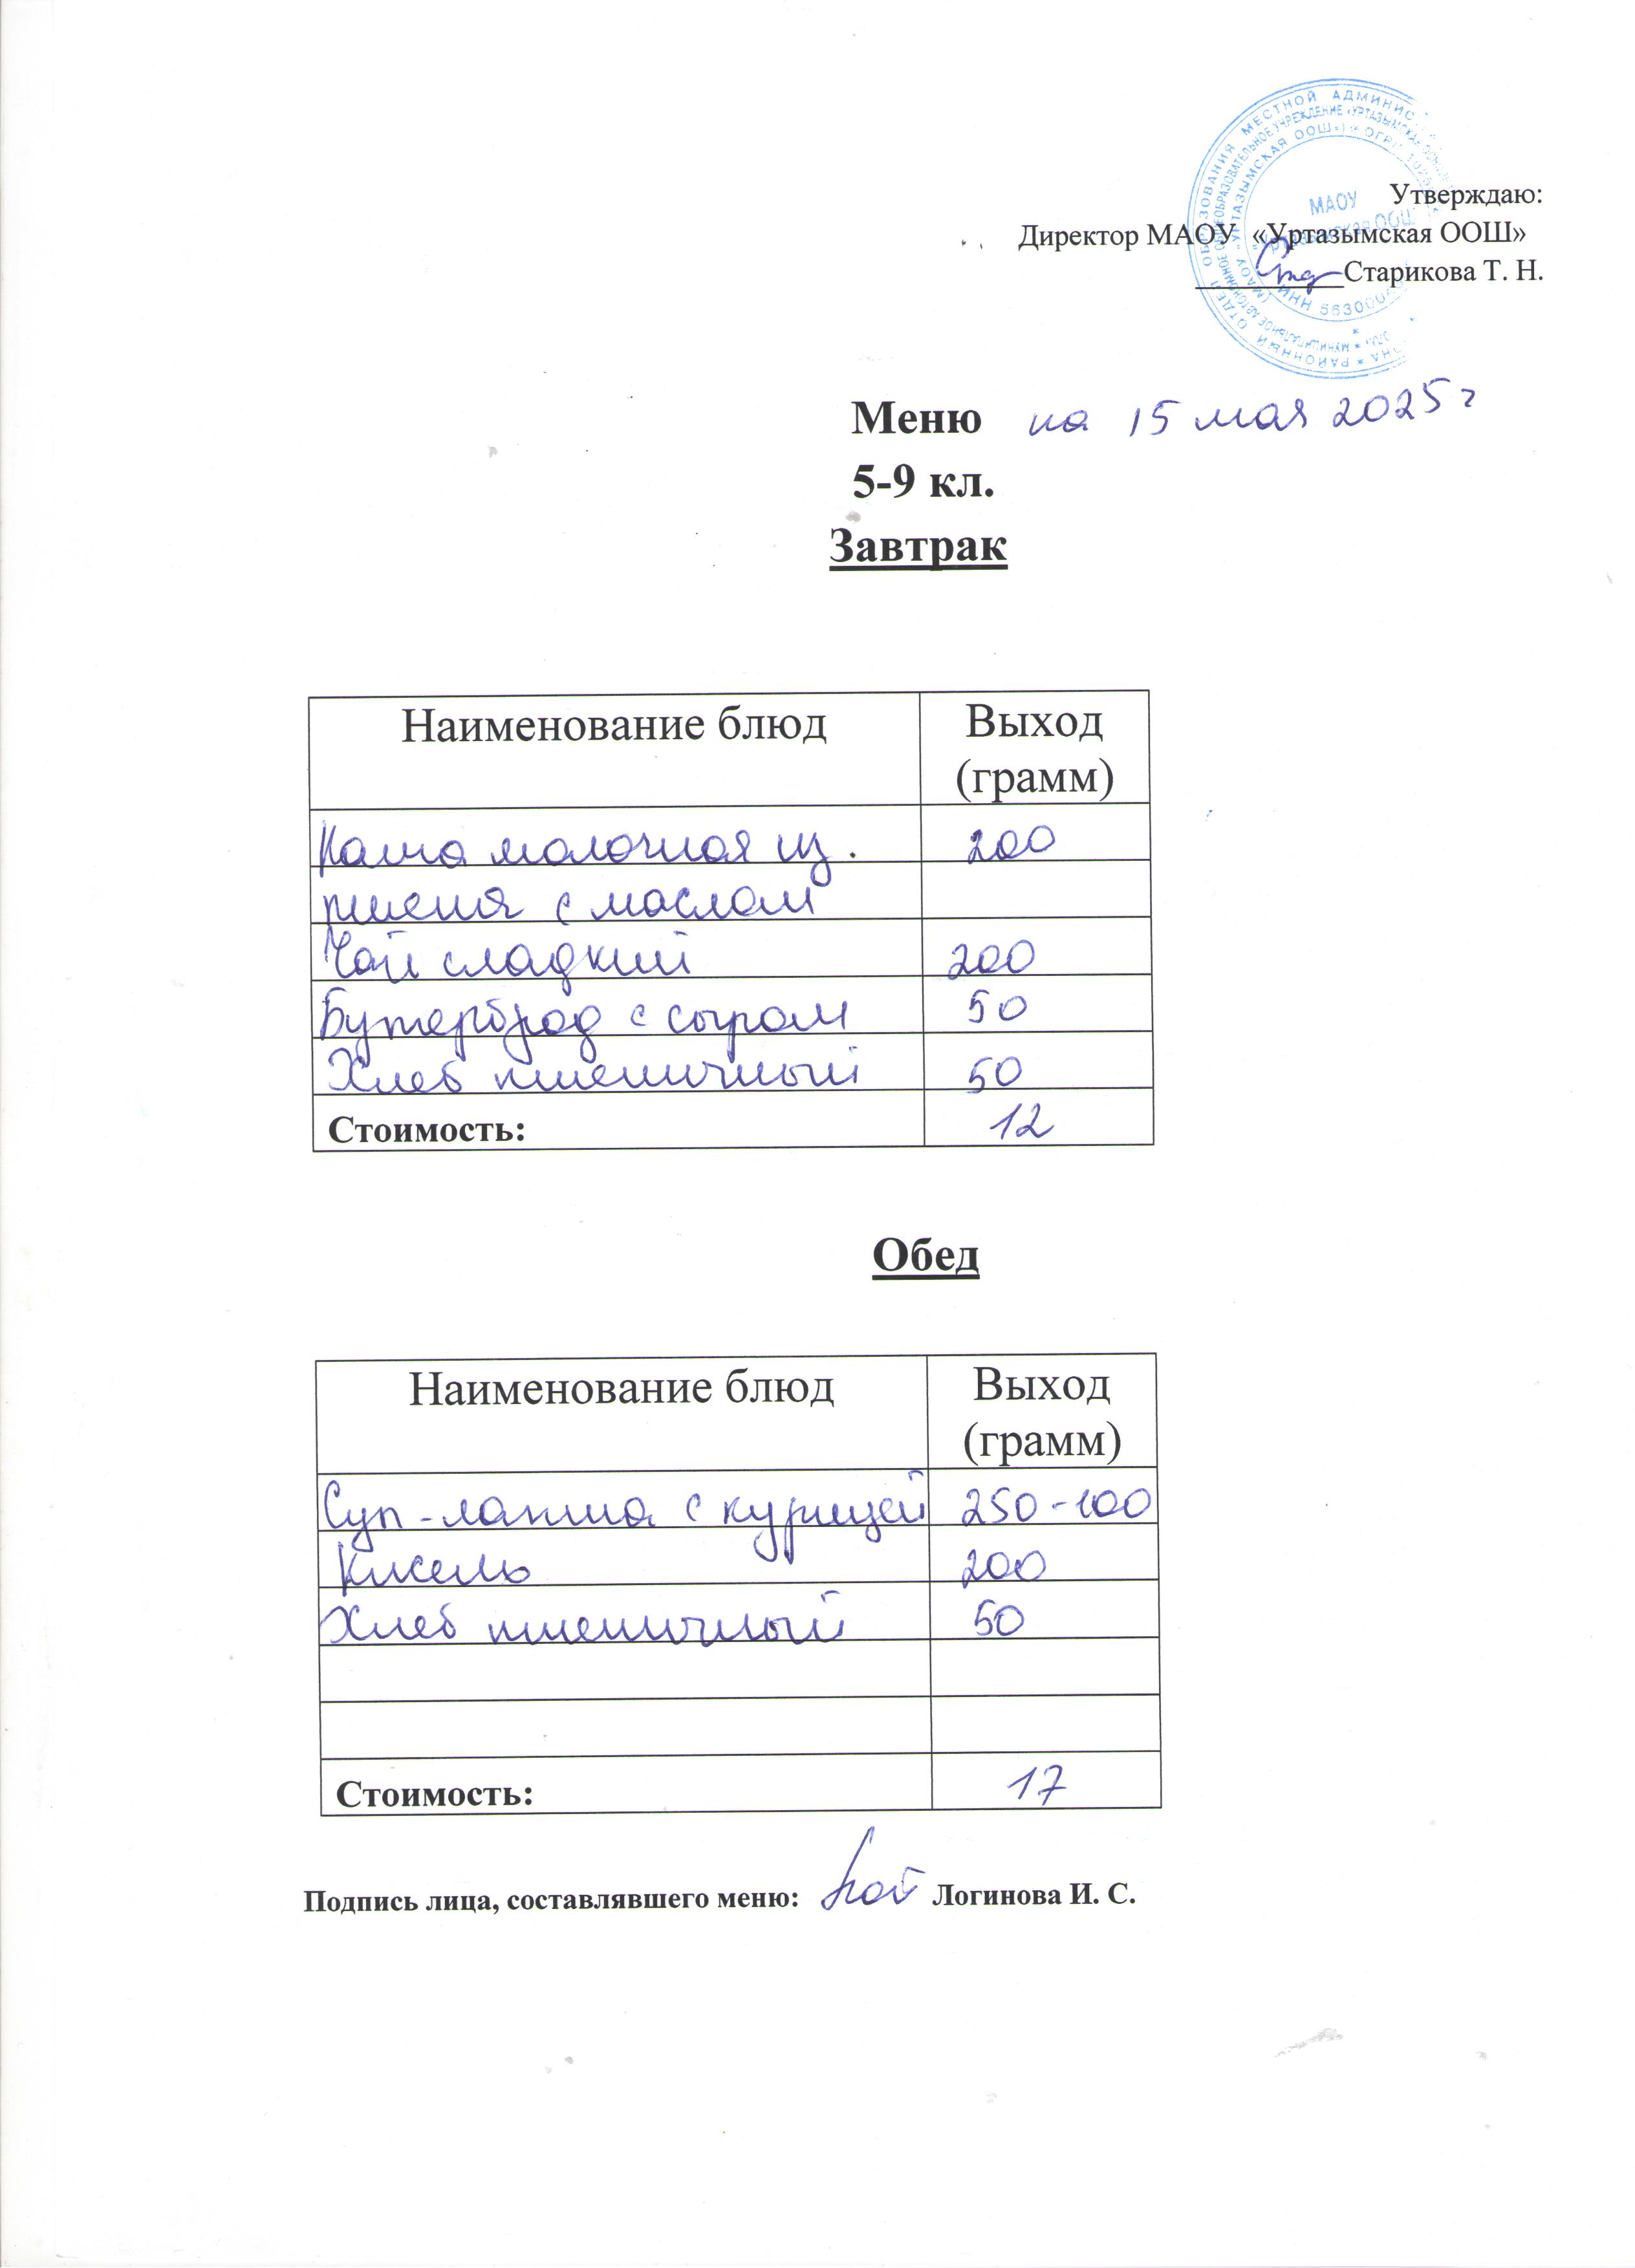 Утверждаю:
Директор МАОУ «Уртазымская ООШ»
Старикова Т. Н.
МАОУ
Меню на 15 мая 2025 г
5-9 кл.
Завтрак
Наименование блюд Выход
(грамм)
Каша молочная из 200
пшена с маслом
Чай сладкий 200
Бутерброд с сыром 50
Хлеб пшеничный 50
Стоимость: 12
Обед
Наименование блюд Выход
(грамм)
Суп-лапша с курицей 250-100
Кисель 200
Хлеб пшеничный 50
Стоимость: 17
Подпись лица, составлявшего меню: Логинова И. С.